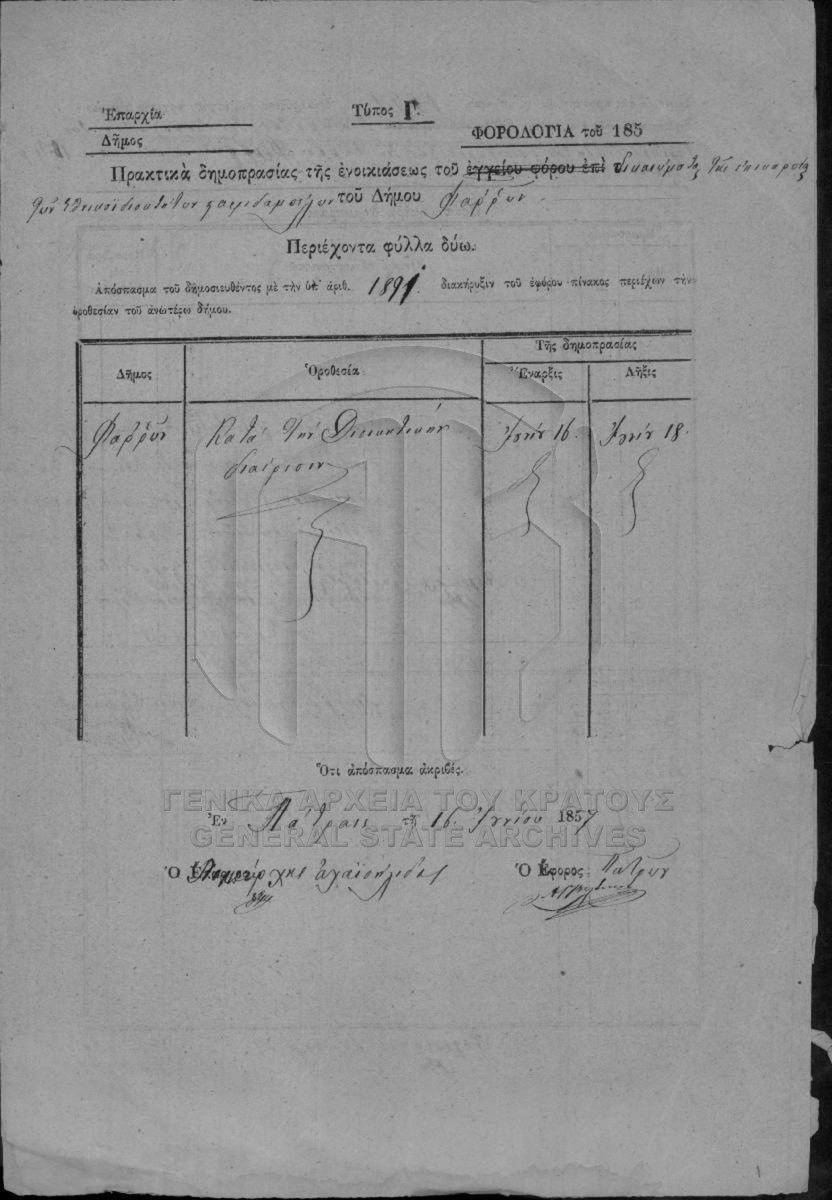 Ἐπαρχία
Τύπος Γ.
Δῆμος
ΦΟΡΟΛΟΓΙΑ τοῦ 185
Πρακτικὰ δημοπρασίας τῆς ἐνοικιάσεως τοῦ ἐγγείου φόρου ἐπὶ δικαιώματος τῆς ἐπικαρπίας
τῶν τοῦ Δήμου Φαρρῶν
Περιέχοντα φύλλα δύω.
Ἀπόσπασμα τοῦ δημοσιευθέντος μὲ τὴν ὑπ' ἀριθ. 1891 διακήρυξιν τοῦ ἐφόρου πίνακος περιέχων τὴν
ὁροθεσίαν τοῦ ἀνωτέρω δήμου.
Δῆμος
Ὁροθεσία
Τῆς δημοπρασίας
Ἔναρξις
Λῆξις
Φαρρῶν
Κατὰ τὴν Διοικητικὴν
διαίρεσιν
Ἰουν 16.
Ἰουν 18.
Ὅτι ἀπόσπασμα ἀκριβές.
ΓΕΝΙΚΑ ΑΡΧΕΙΑ ΤΟΥ ΚΡΑΤΟΥΣ
Ἐν Πάτραις τῇ 16 Ἰουνίου 1857
GENERAL STATE ARCHIES
Ὁ Νομάρχης Ἀχαϊοήλιδος
Ὁ Ἔφορος Πατρῶν